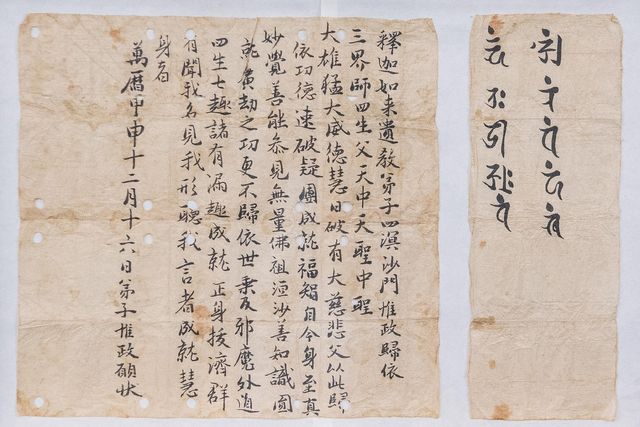 釋迦如来遺教弟子四溟沙門惟政歸依
三界師四生父天中天聖中聖
大雄猛大威德慧日破有大慈悲父以此歸
依功德速破疑團成就福智自今身至真
妙覺善能叅見無量佛祖洹沙善知識圓
就廣劫之功更不歸依世乗及邪魔外道
四生七趣諸有漏趣成就正身拔濟群
有聞我名見我形聽我言者成就慧
身者
萬曆甲申十二月十六日弟子惟政願状